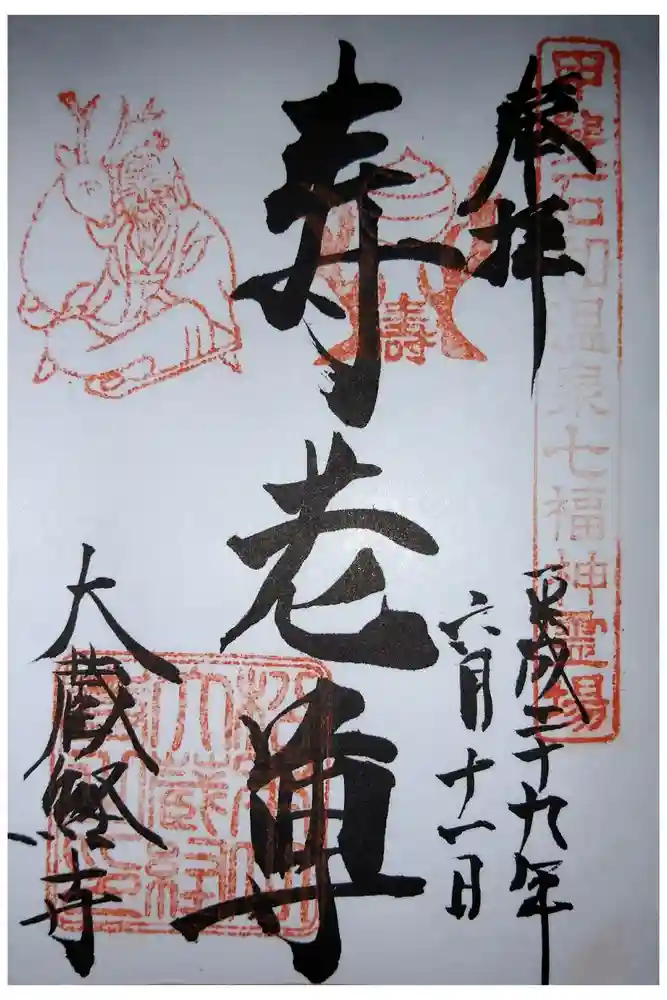 奉拝
甲斐石和温泉七福神霊場
平成二十九年
六月十一日
壽
寿老尊
大蔵経寺